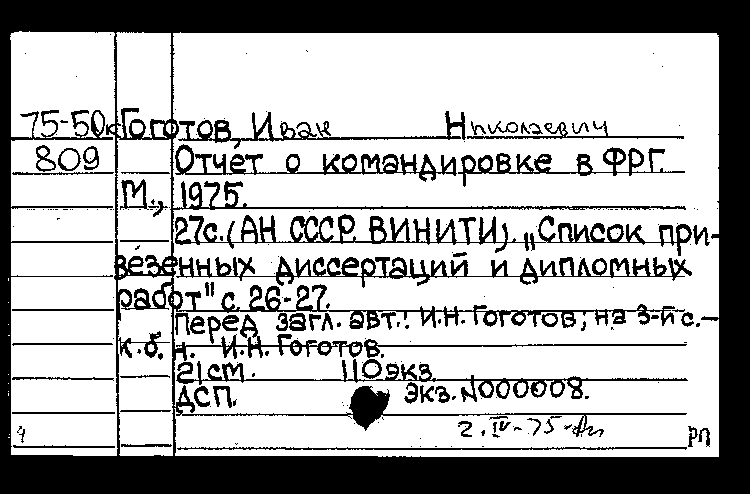 75-50к Гоготов, Иван Николаевич
809 Отчёт о командировке в ФРГ.
М., 1975.
27с. (АН СССР. ВИНИТИ). „Список при-
везенных диссертаций и дипломных
работ" с. 26-27.
Перед загл. авт.: И.Н. Гоготов; на 3-й с.—
к.б.н. И.Н. Гоготов.
21 ст. 110 экз.
ДСП. Экз. N000008.
2.IV-75
ч РП